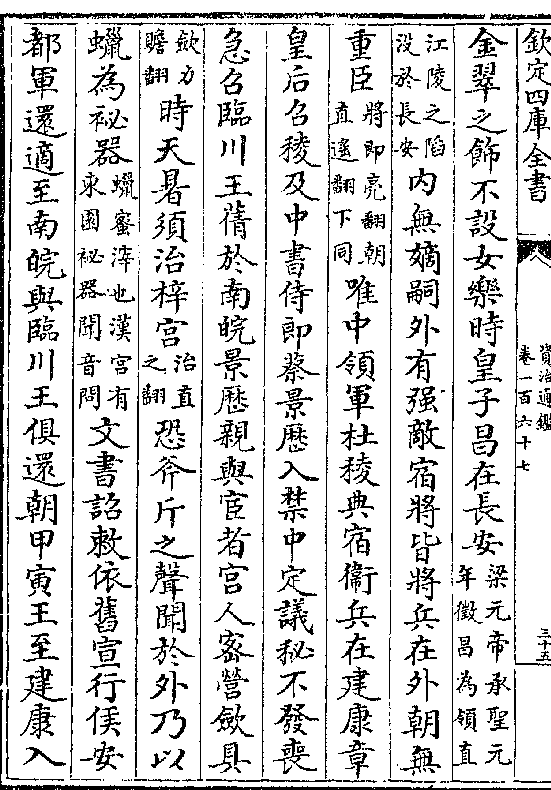 欽定四庫全書
資治通鑑
卷一百六十七
三十五
金翠之飾不設女樂時皇子昌在長安梁元帝承聖元年徵昌為領直
江陵之陷没於長安内無嫡嗣外有强敵宿將皆將兵在外朝無
重臣將即亮翻朝直遙翻下同唯中領軍杜稜典宿衞兵在建康章
皇后召稜及中書侍郎蔡景歷入禁中定議秘不發喪
急召臨川王蒨於南皖景歷親與宦者宫人密營斂具
斂力贍翻時天暑須治梓宫治直之翻恐斧斤之聲聞於外乃以
蠟為祕器蠟蜜滓也漢宫有東園祕器聞音問文書詔敕依舊宣行侯安
都軍還適至南皖與臨川王俱還朝甲寅王至建康入